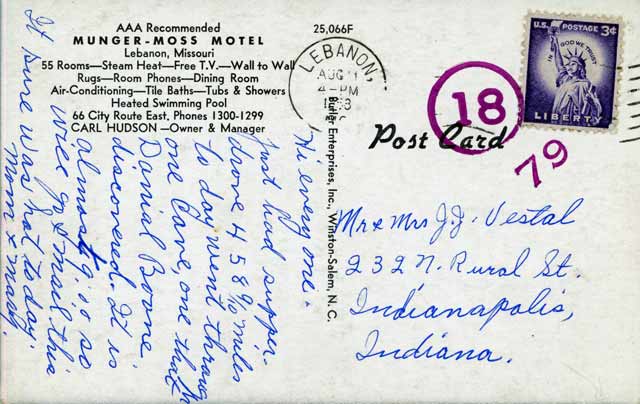 AAA Recommended
MUNGER-MOSS MOTEL
Lebanon, Missouri
55 Rooms—Steam Heat—Free T.V.—Wall to Wall
Rugs—Room Phones—Dining Room
Air-Conditioning—Tile Baths—Tubs & Showers
Heated Swimming Pool
66 City Route East, Phones 1300-1299
CARL HUDSON—Owner & Manager
25,066F
LEBANON,
AUG 11
4-PM
Butler Enterprises, Inc., Winston-Salem, N. C.
Post Card
18
79
U.S. POSTAGE 3¢
IN GOD WE TRUST
LIBERTY
Hi every one.
Just had supper.
Drove 458 9/10 miles
to day went through
one Cave, one that
Danial Boone
discovered. It is
almost 9:00 so
will go & mail this
It sure was hot today.
Mom &
Mr & Mrs J.J. Vestal
232 N. Rural St.
Indianapolis,
Indiana.